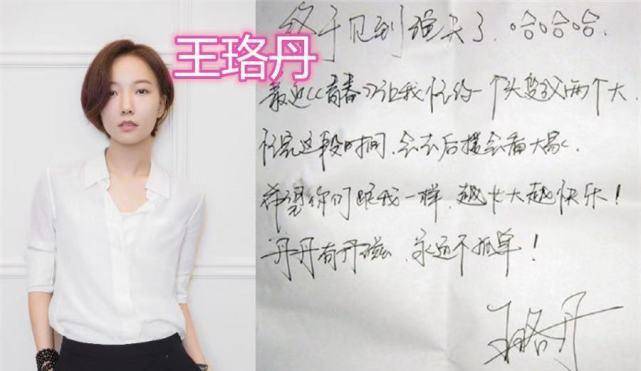 王珞丹
终于见到磁头了，哈哈哈
最近《青春》让我忙的一个头变成两个大
忙完这段时间，会去后援会看大家
希望你们跟我一样，越长大越快乐！
丹丹有丹磁，永远不孤单！
王珞丹